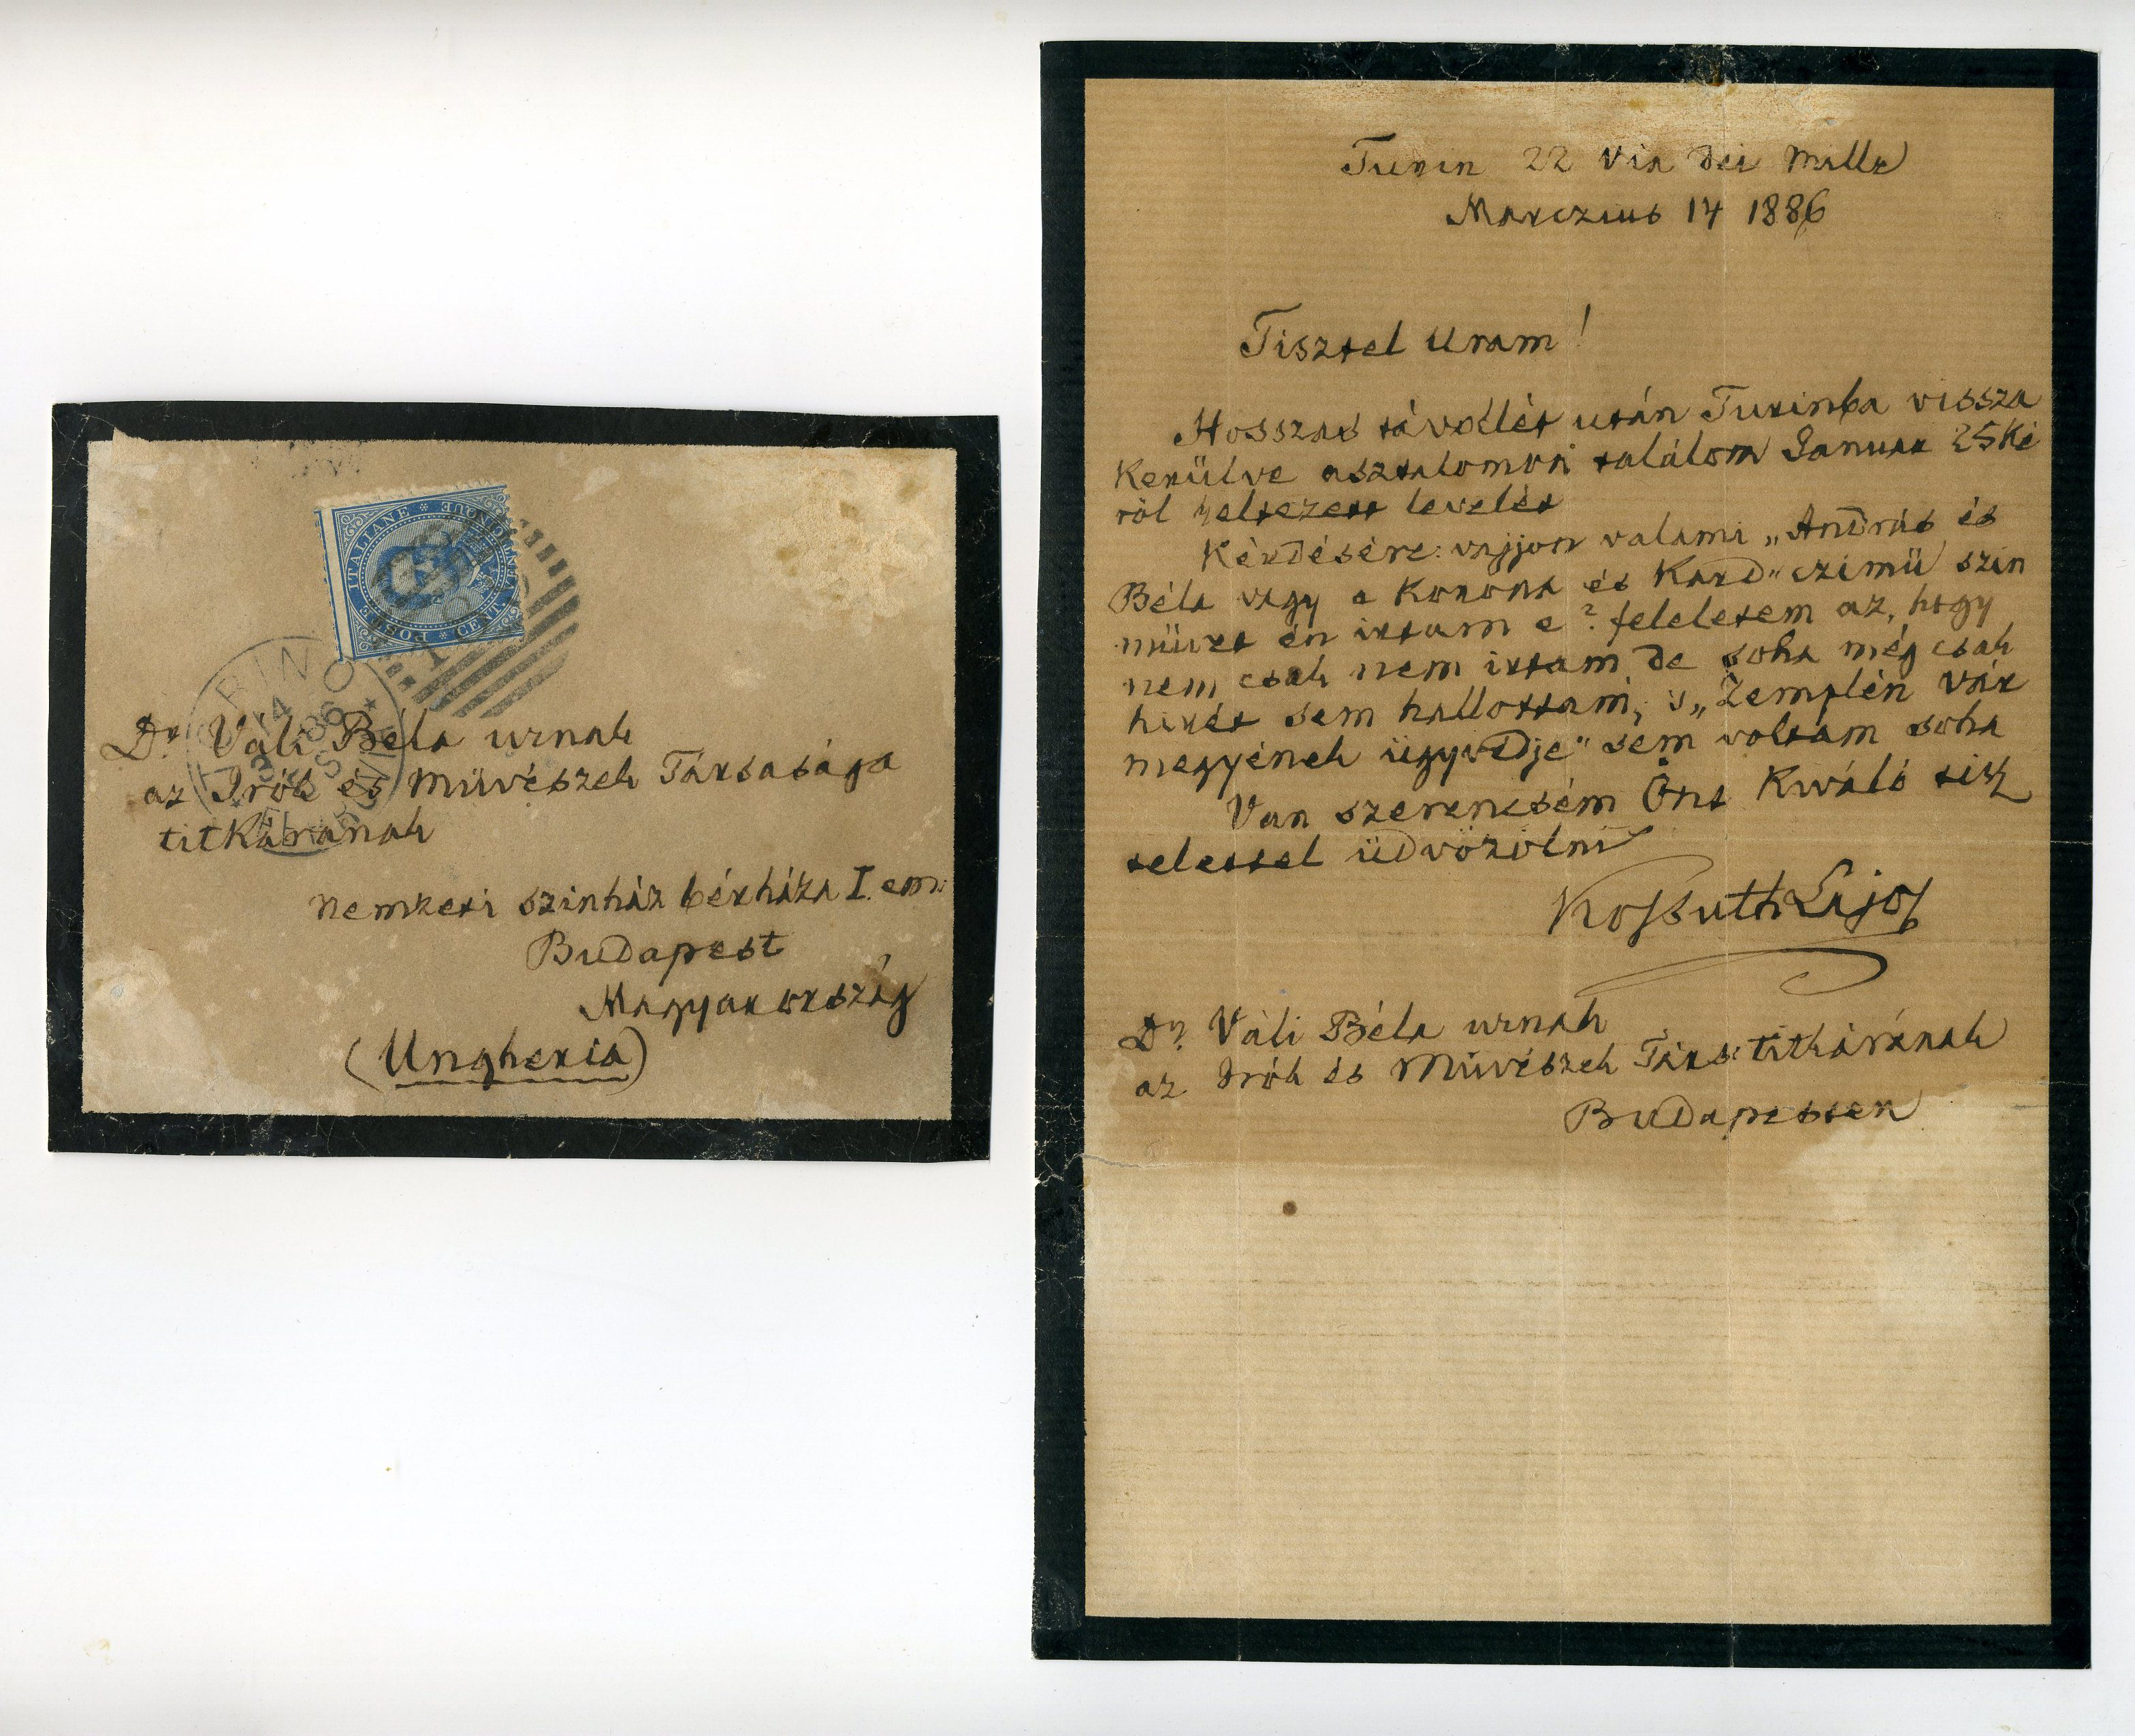 POSTE ITALIANE
CENT. VENTICINQUE
TORINO
14
86
Dr Váli Béla urnak
az Irók és Művészek Társasága
titkáranak
nemzeti szinház bérháza I. em:
Budapest
Magyarország
(Ungheria)
Turin 22 Via dei Mille
Marczius 14 1886
Tisztel Uram!
Hosszas távollét után Turinba vissza
kerülve asztalomon találom Januar 25ké
ról keltezett levelét
Kérdésére: vajjon valami „András és
Béla vagy a Korona és Kard" czimü szin
müvet én irtam e? feleletem az, hogy
nem csak nem irtam de soha még csak
hirét sem hallottam, s „Zemplén vár
megyének ügyvédje" sem voltam soha
Van szerencsém Önt kiváló tisz
telettel üdvözölni
Kossuth Lajos
Dr. Váli Béla urnak
az Irók és Művészek Társ: titkárának
Budapesten